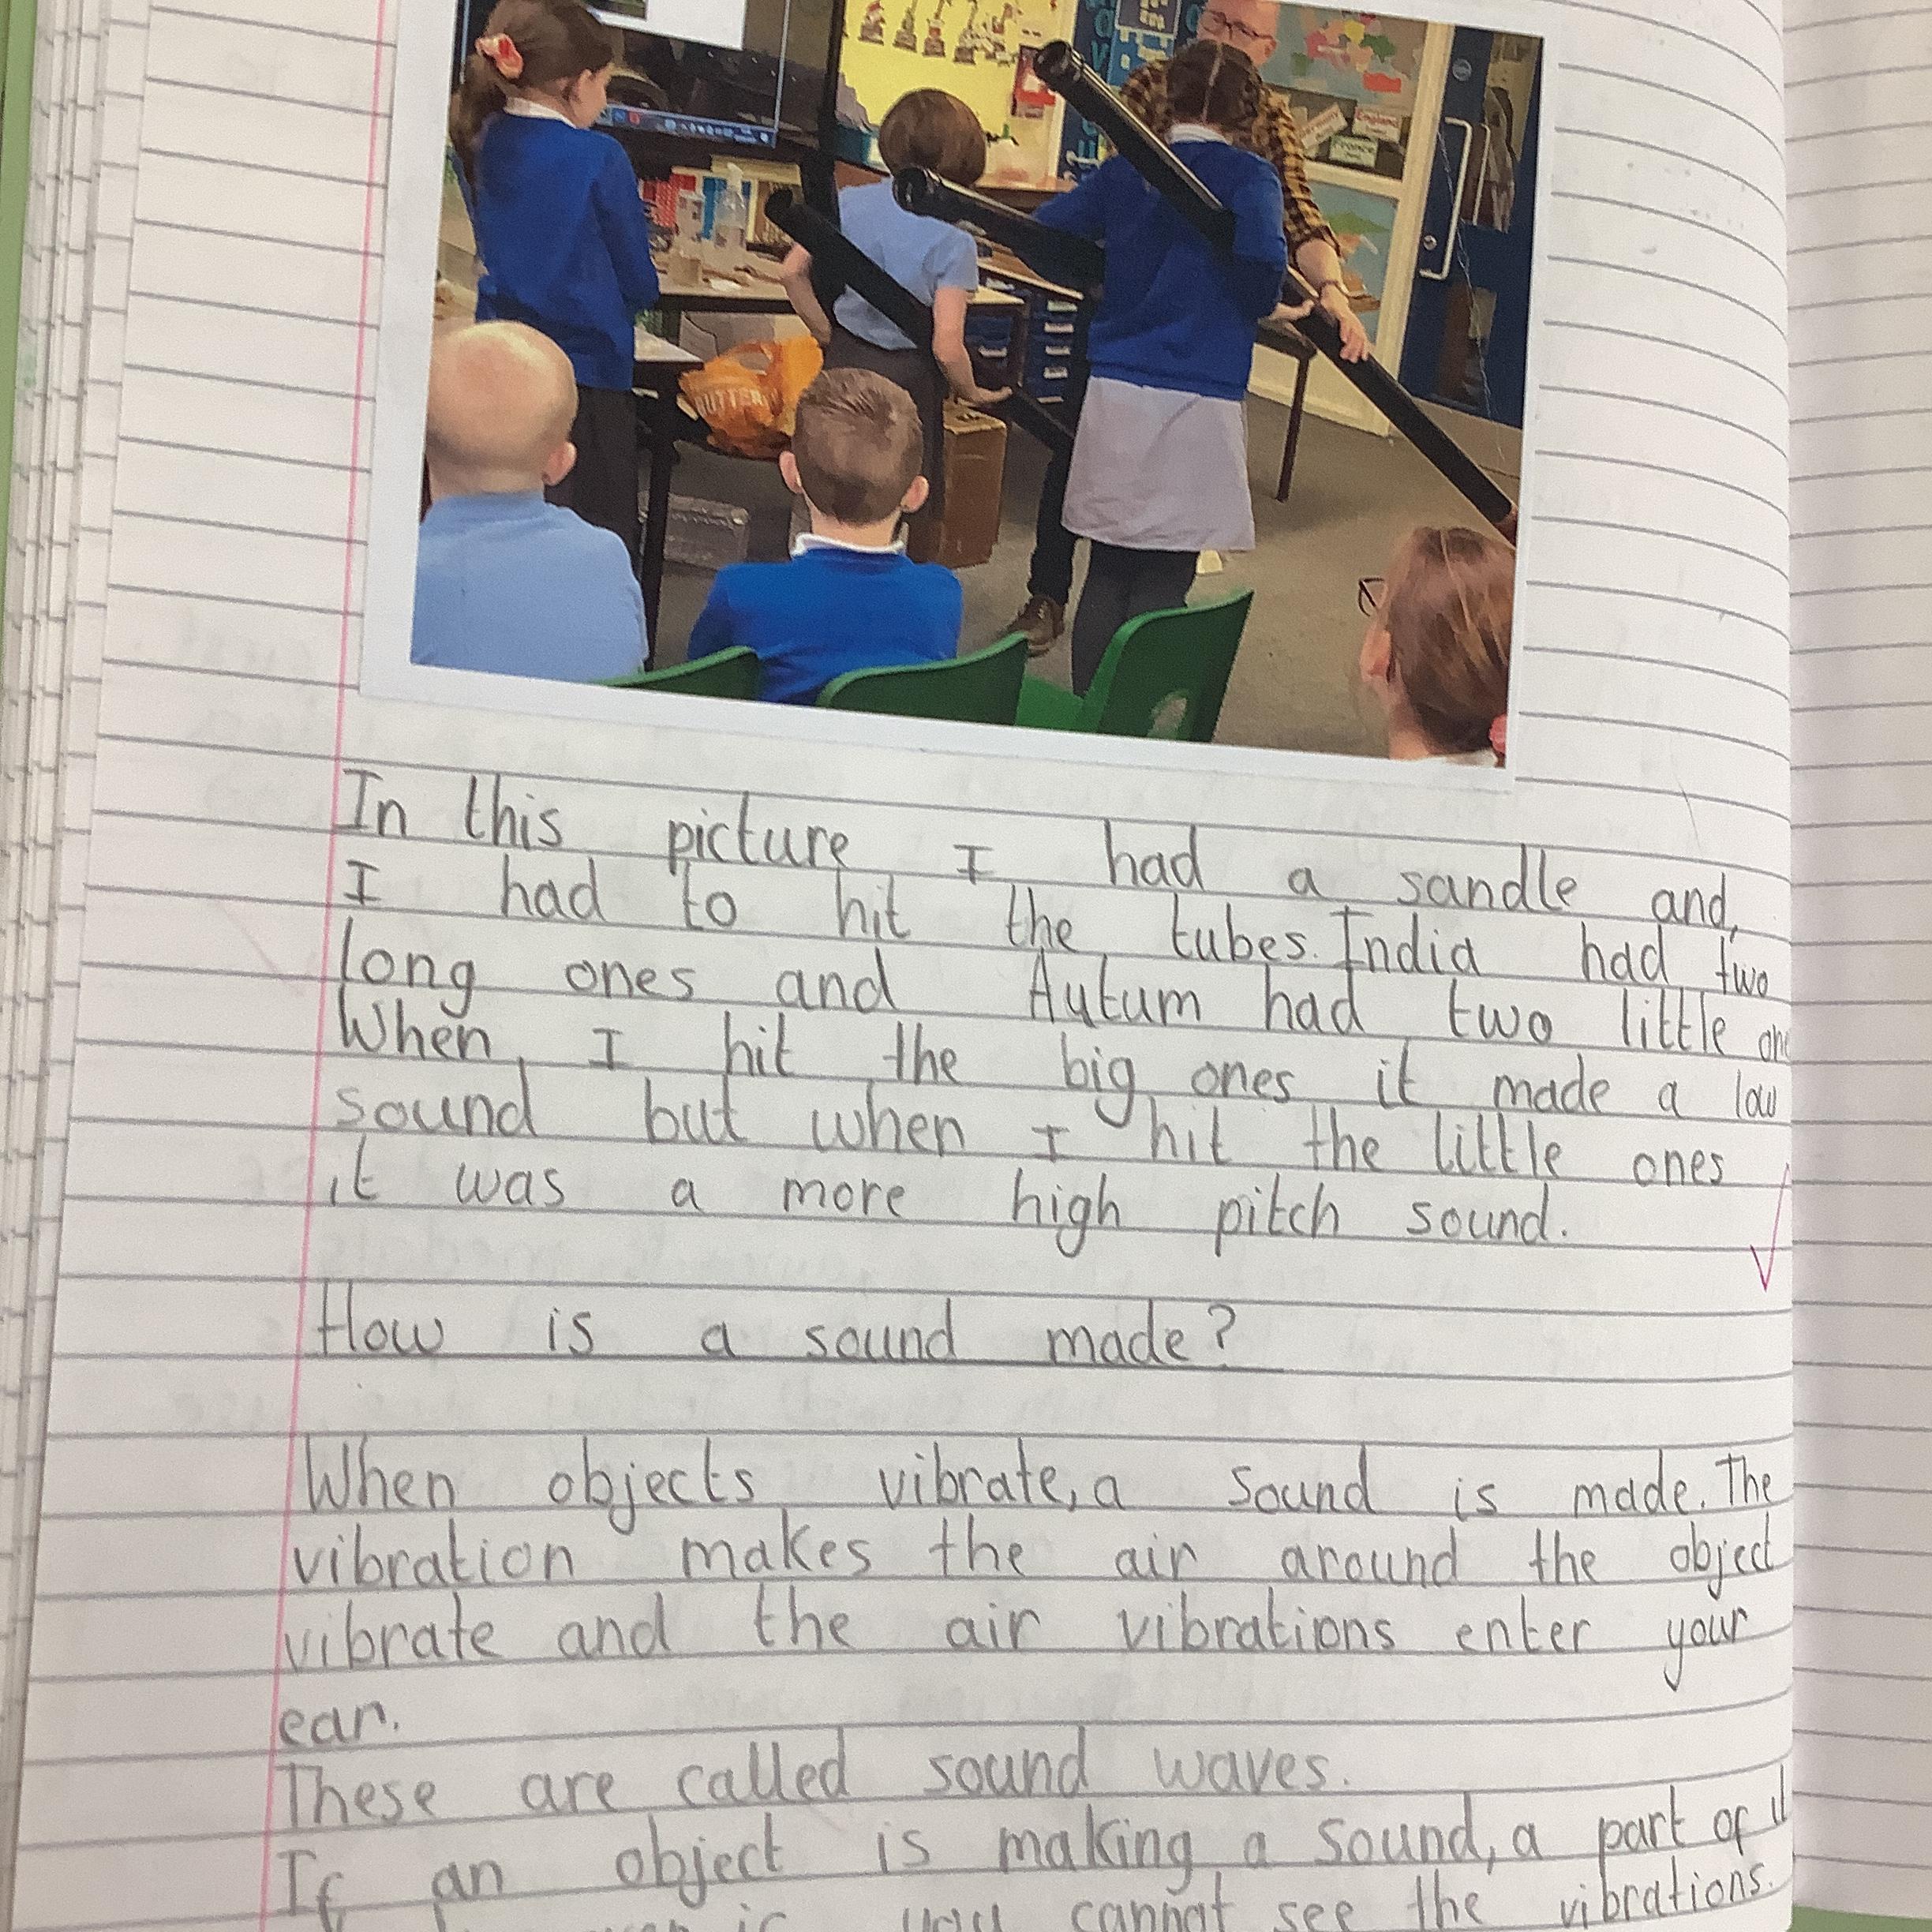 England
France
Germany
In this picture I had a sandle and,
I had to hit the tubes. India had two
long ones and Autum had two little
When, I hit the big ones it made a low
sound but when I hit the little ones
it was a more high pitch sound.
How is a sound made?
When objects vibrate, a sound is made. The
vibration makes the air around the object
vibrate and the air vibrations enter your
ear.
These are called sound waves.
If an object is making a sound, a part of
you cannot see the vibrations.